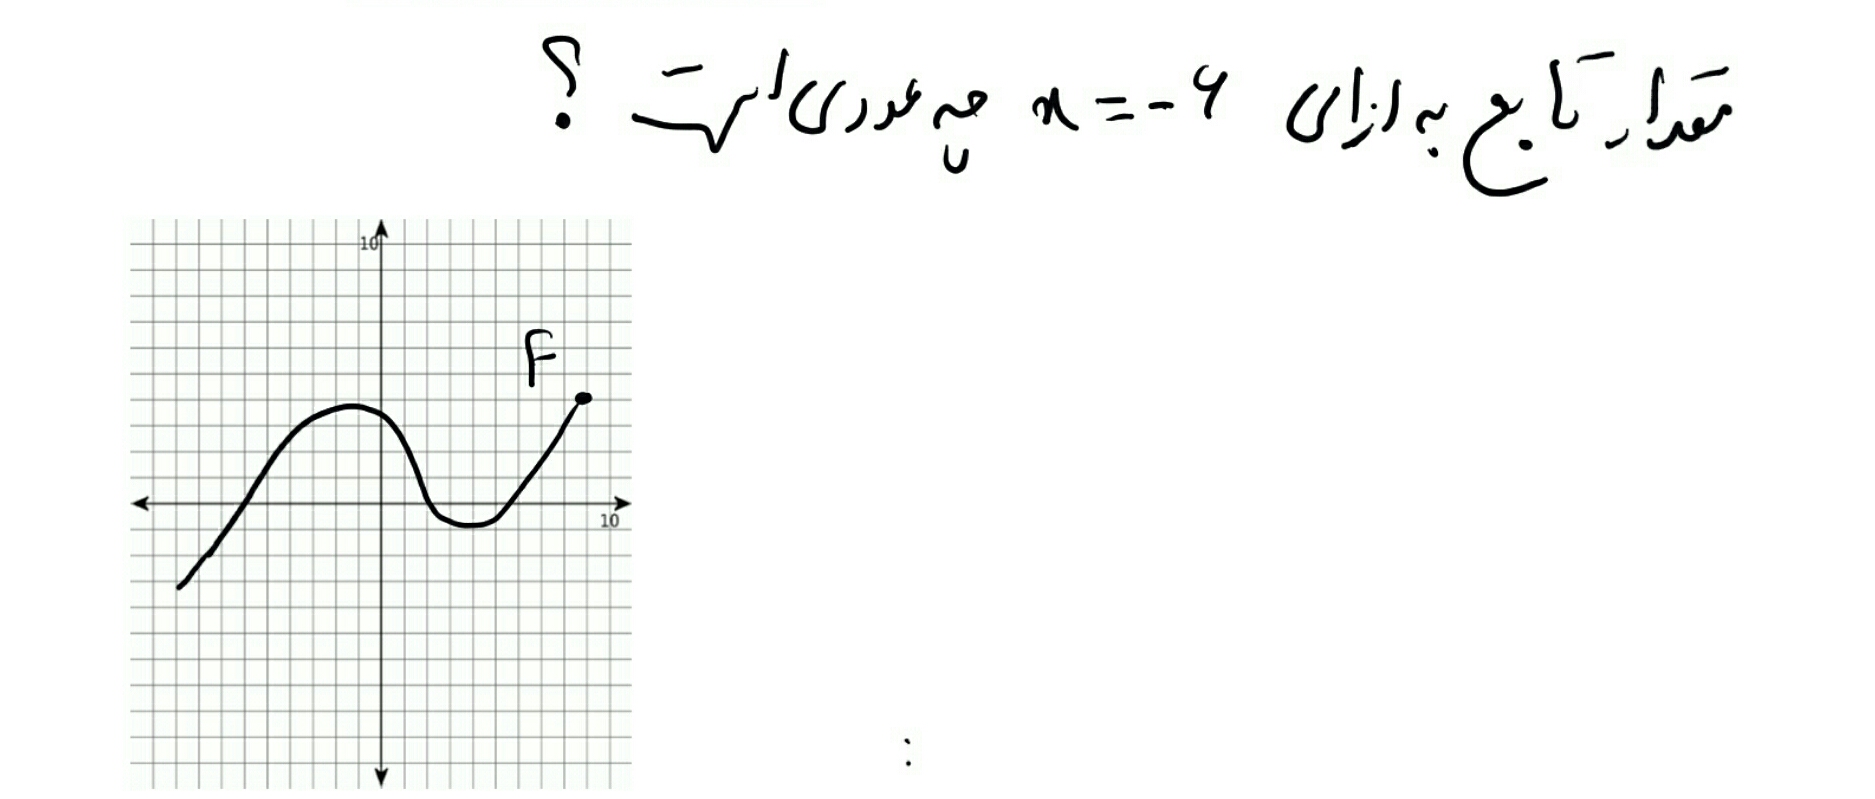 مقدار تابع به ازای x = -۶ چه عددی است ؟
10
F
10
: